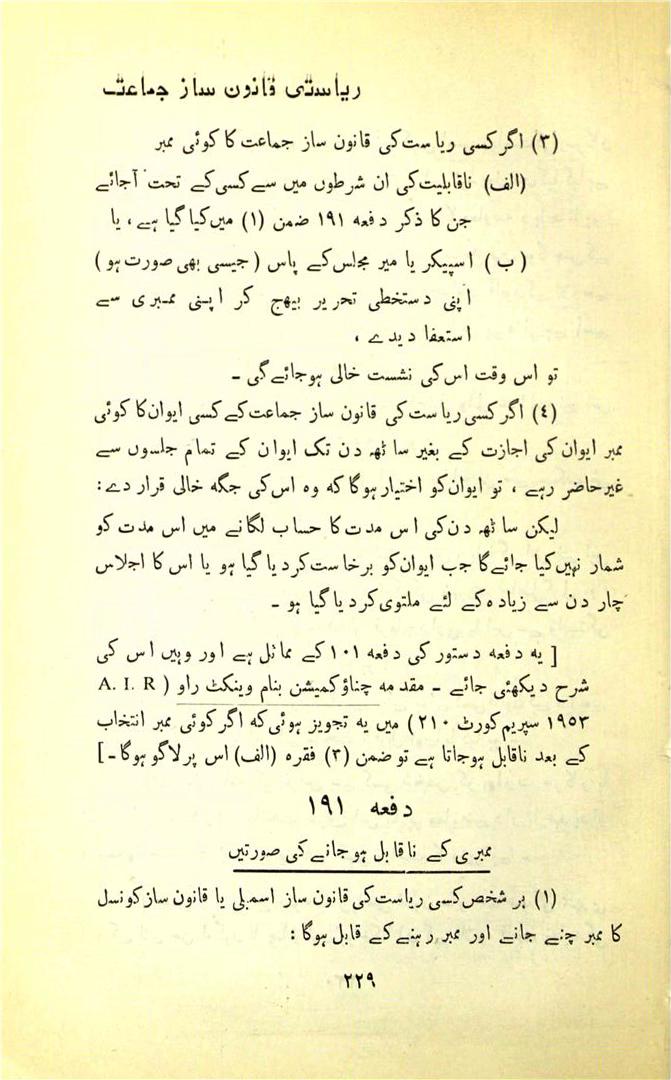 ریاستی قانون ساز جماعت
(۳) اگر کسی ریاست کی قانون ساز جماعت کا کوئی ممبر
(الف) ناقابلیت کی ان شرطوں میں سے کسی کے تحت آجائے
جن کا ذکر دفعہ ۱۹۱ ضمن (۱) میں کیا گیا ہے، یا
(ب) اسپیکر یا میر مجلس کے پاس (جیسی بھی صورت ہو)
اپنی دستخطی تحریر بھیج کر اپنی ممبری سے
استعفا دیدے،
تو اس وقت اس کی نشست خالی ہوجائے گی ۔
(٤) اگر کسی ریاست کی قانون ساز جماعت کے کسی ایوان کا کوئی
ممبر ایوان کی اجازت کے بغیر ساٹھ دن تک ایوان کے تمام جلسوں سے
غیر حاضر رہے، تو ایوان کو اختیار ہوگا کہ وہ اس کی جگہ خالی قرار دے:
لیکن ساٹھ دن کی اس مدت کا حساب لگانے میں اس مدت کو
شمار نہیں کیا جائے گا جب ایوان کو برخاست کردیا گیا ہو یا اس کا اجلاس
چار دن سے زیادہ کے لئے ملتوی کردیا گیا ہو ۔
[ یہ دفعہ دستور کی دفعہ ۱۰۱ کے مماثل ہے اور وہیں اس کی
شرح دیکھئی جائے ۔ مقدمہ چناؤ کمیشن بنام وینکٹ راو (A. I. R
۱۹۵۳ سپریم کورٹ ۲۱۰) میں یہ تجویز ہوئی کہ اگر کوئی ممبر انتخاب
کے بعد ناقابل ہوجاتا ہے تو ضمن (۳) فقرہ (الف) اس پر لاگو ہوگا۔]
دفعہ ۱۹۱
ممبری کے ناقابل ہوجانے کی صورتیں
(۱) ہر شخص کسی ریاست کی قانون ساز اسمبلی یا قانون ساز کونسل
کا ممبر چنے جانے اور ممبر رہنے کے قابل ہوگا:
۲۲۹